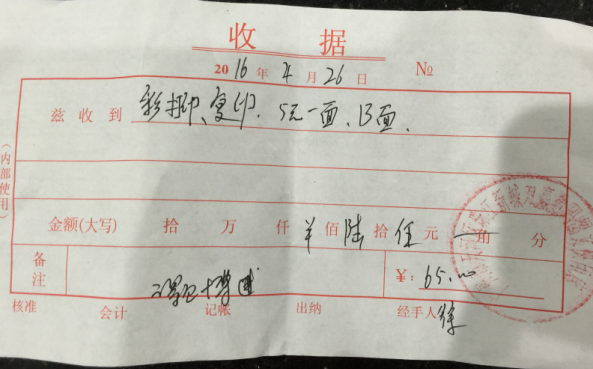 收 据
2016年4月26日 №
兹收到 彩打印、复印. 5元一面、13面.
(内部使用)
金额(大写) 拾 万 仟 ¥ 佰 陆 拾 伍 元 一 角 分
备注
¥: 65.00
核准 会计 记帐 出纳 经手人 徐